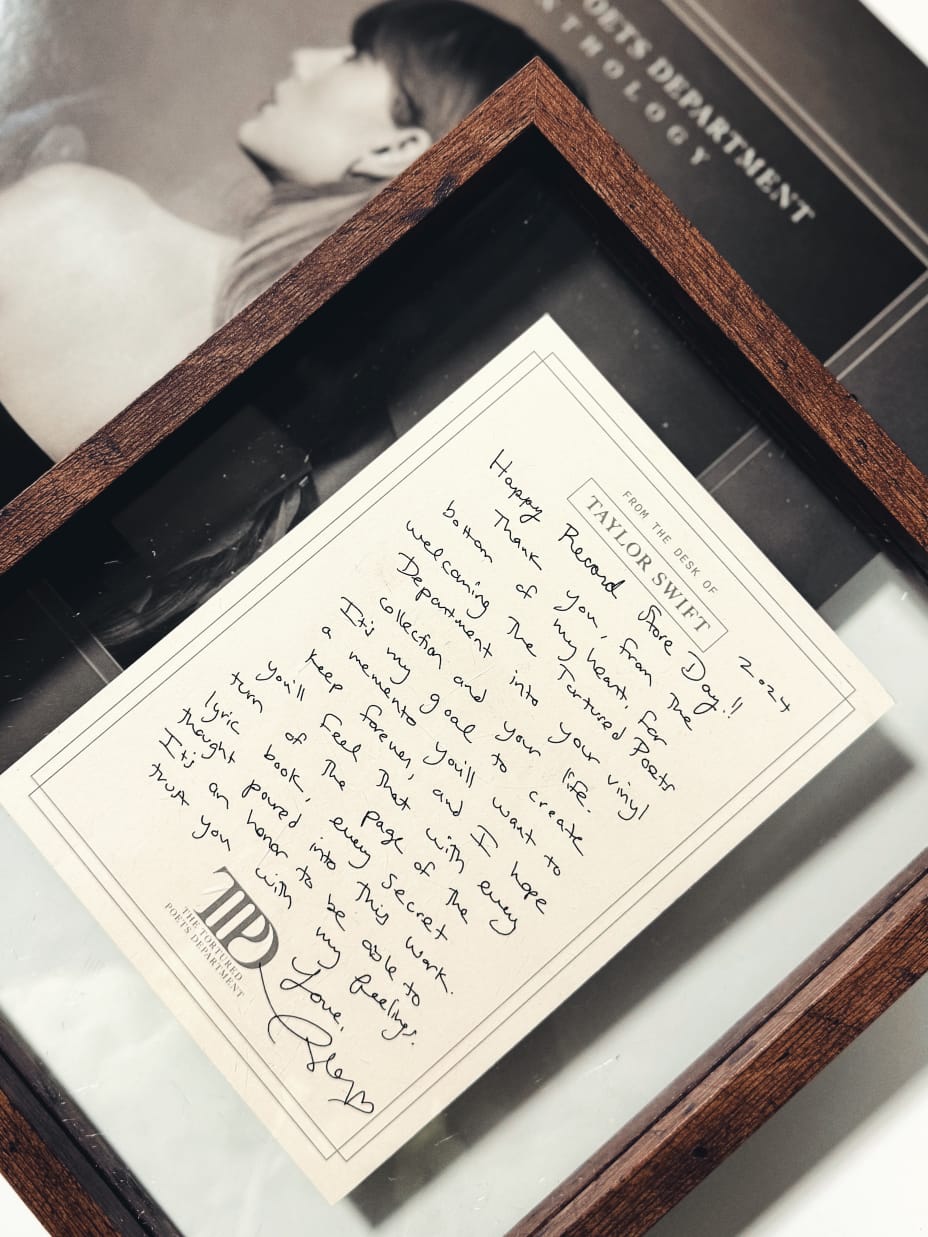 POETS DEPARTMENT
ANTHOLOGY
FROM THE DESK OF
TAYLOR SWIFT
2024
Happy Record Store Day!!
Thank you, from the
bottom of my heart, for
welcoming The Tortured Poets
Department into your vinyl
collection and your life.
It's my goal to create
a memento you'll want to
keep forever, and I hope
you'll feel that with every
turn of the page of the
lyric book, every secret
thought poured into this work.
It's an honor to be able to
trust you with my feelings.
Love,
TTPD
THE TORTURED
POETS DEPARTMENT